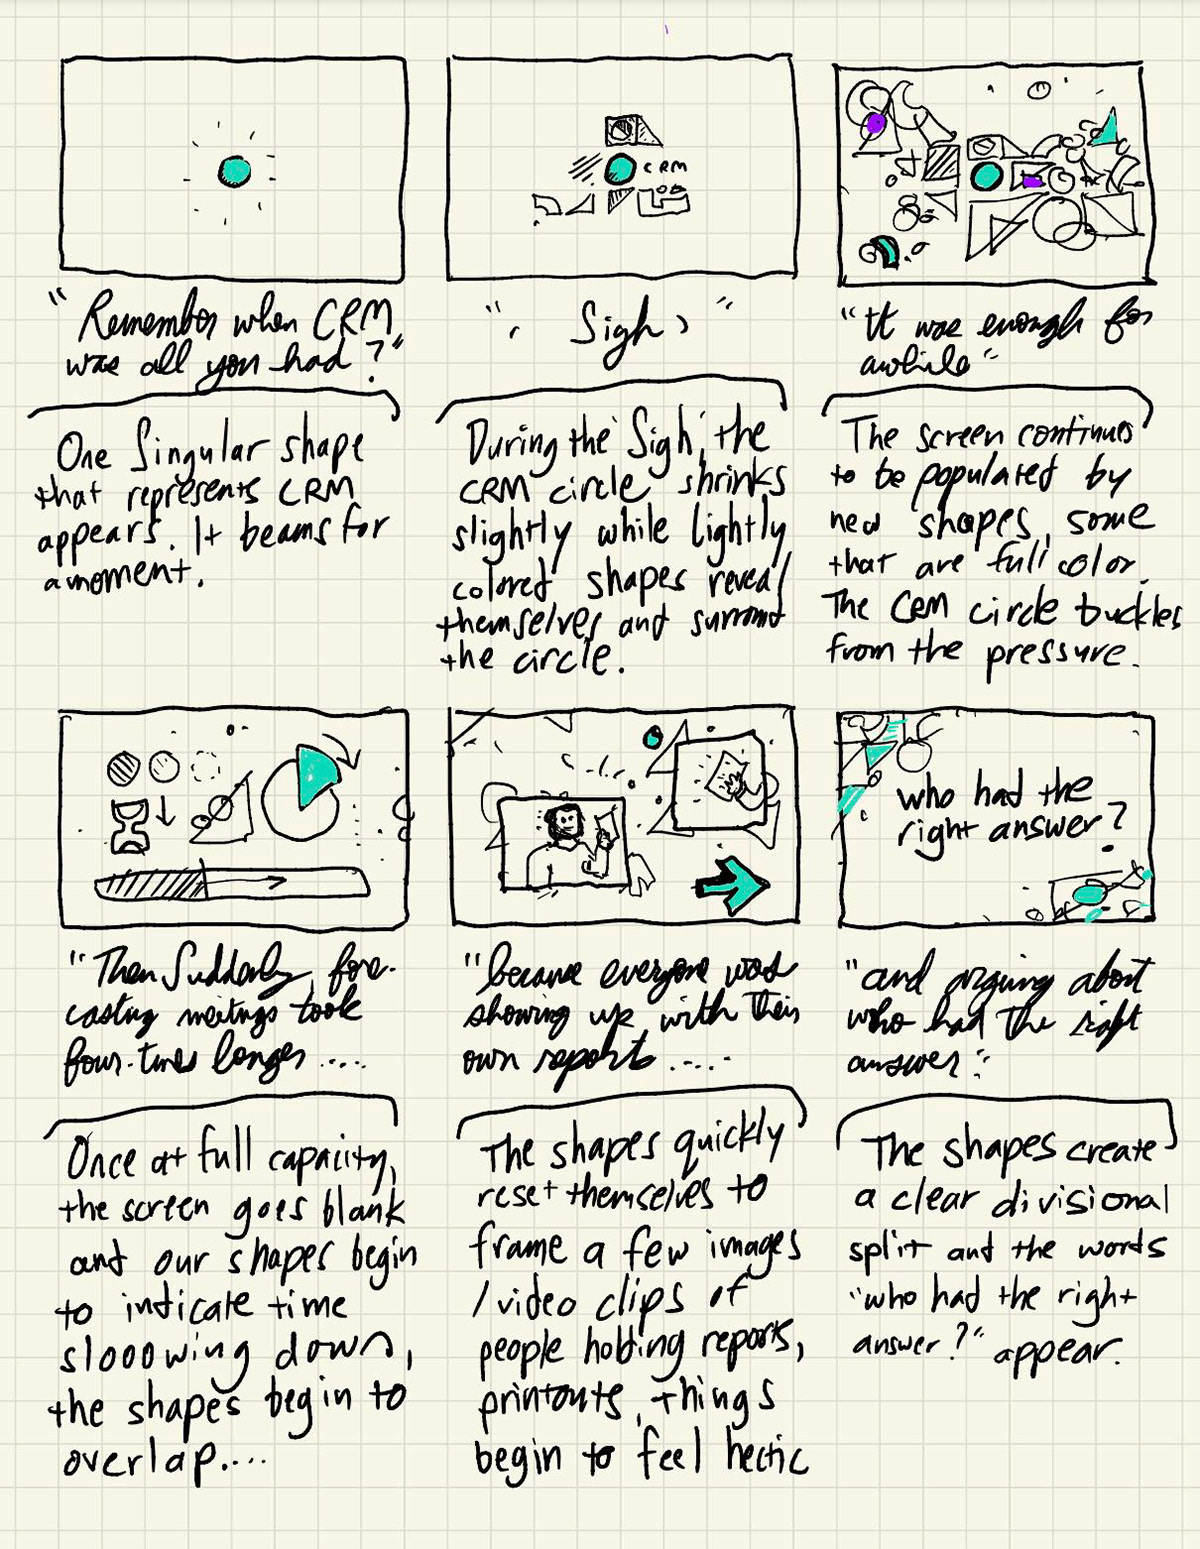 CRM
"Remember when CRM
was all you had?"
", Sigh, "
"It was enough for
awhile"
One Singular shape
that represents CRM
appears. It beams for
a moment.
During the 'Sigh', the
CRM circle shrinks
slightly while lightly
colored shapes reveal
themselves and surround
the circle.
The screen continues
to be populated by
new shapes, some
that are full color.
The CRM circle buckles
from the pressure.
who had the
right answer?
"Then Suddenly, fore-
casting meetings took
four-times longer ....
"because everyone was
showing up with their
own reports ....
"and arguing about
who had the right
answer"
Once at full capacity,
the screen goes blank
and our shapes begin
to indicate time
slooowing down,
the shapes begin to
overlap....
The shapes quickly
reset themselves to
frame a few images
/video clips of
people holding reports,
printouts, things
begin to feel hectic
The shapes create
a clear divisional
split and the words
"who had the right
answer?" appear.